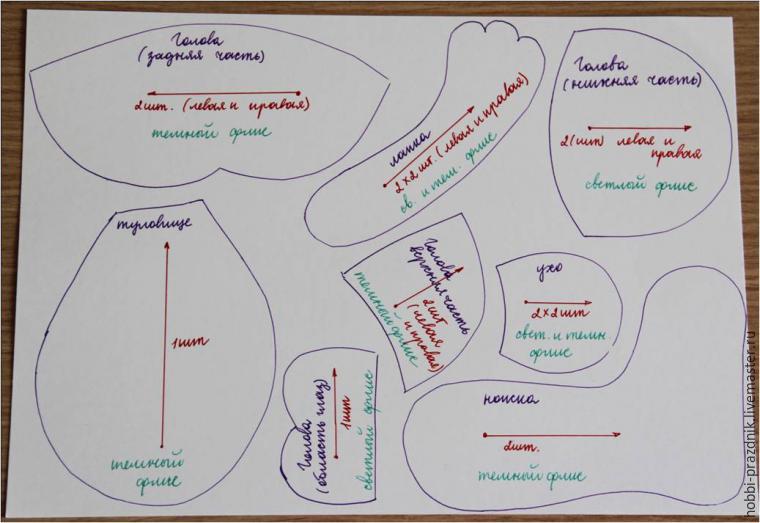 Голова
(задняя часть)
2 шт. (левая и правая)
темный флис
лапка
2×2 шт. (левая и правая)
св. и тем. флис
Голова
(нижняя часть)
2 (шт) левая и
правая
светлый флис
туловище
1 шт
темный
флис
Голова
верхняя часть
2 шт
(левая
и правая)
темный флис
ухо
2×2 шт
свет. и темн
флис
Голова
(область глаз)
1 шт
светлый флис
ножка
2 шт.
темный флис
hobbi-prazdnik.livemaster.ru